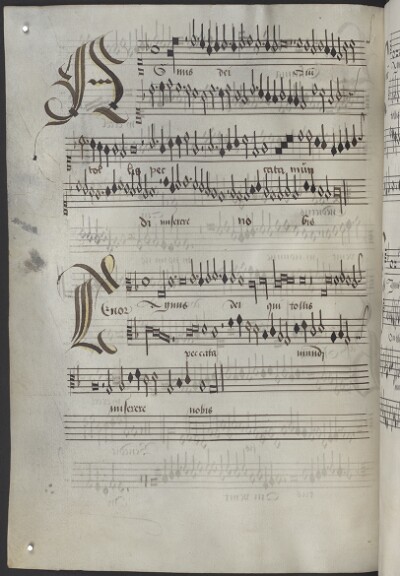 A Gnus dei Qui
tol lis pec cata mun
di miserere no bis
Tenor Agnus dei qui tollis
peccata mundi
miserere nobis